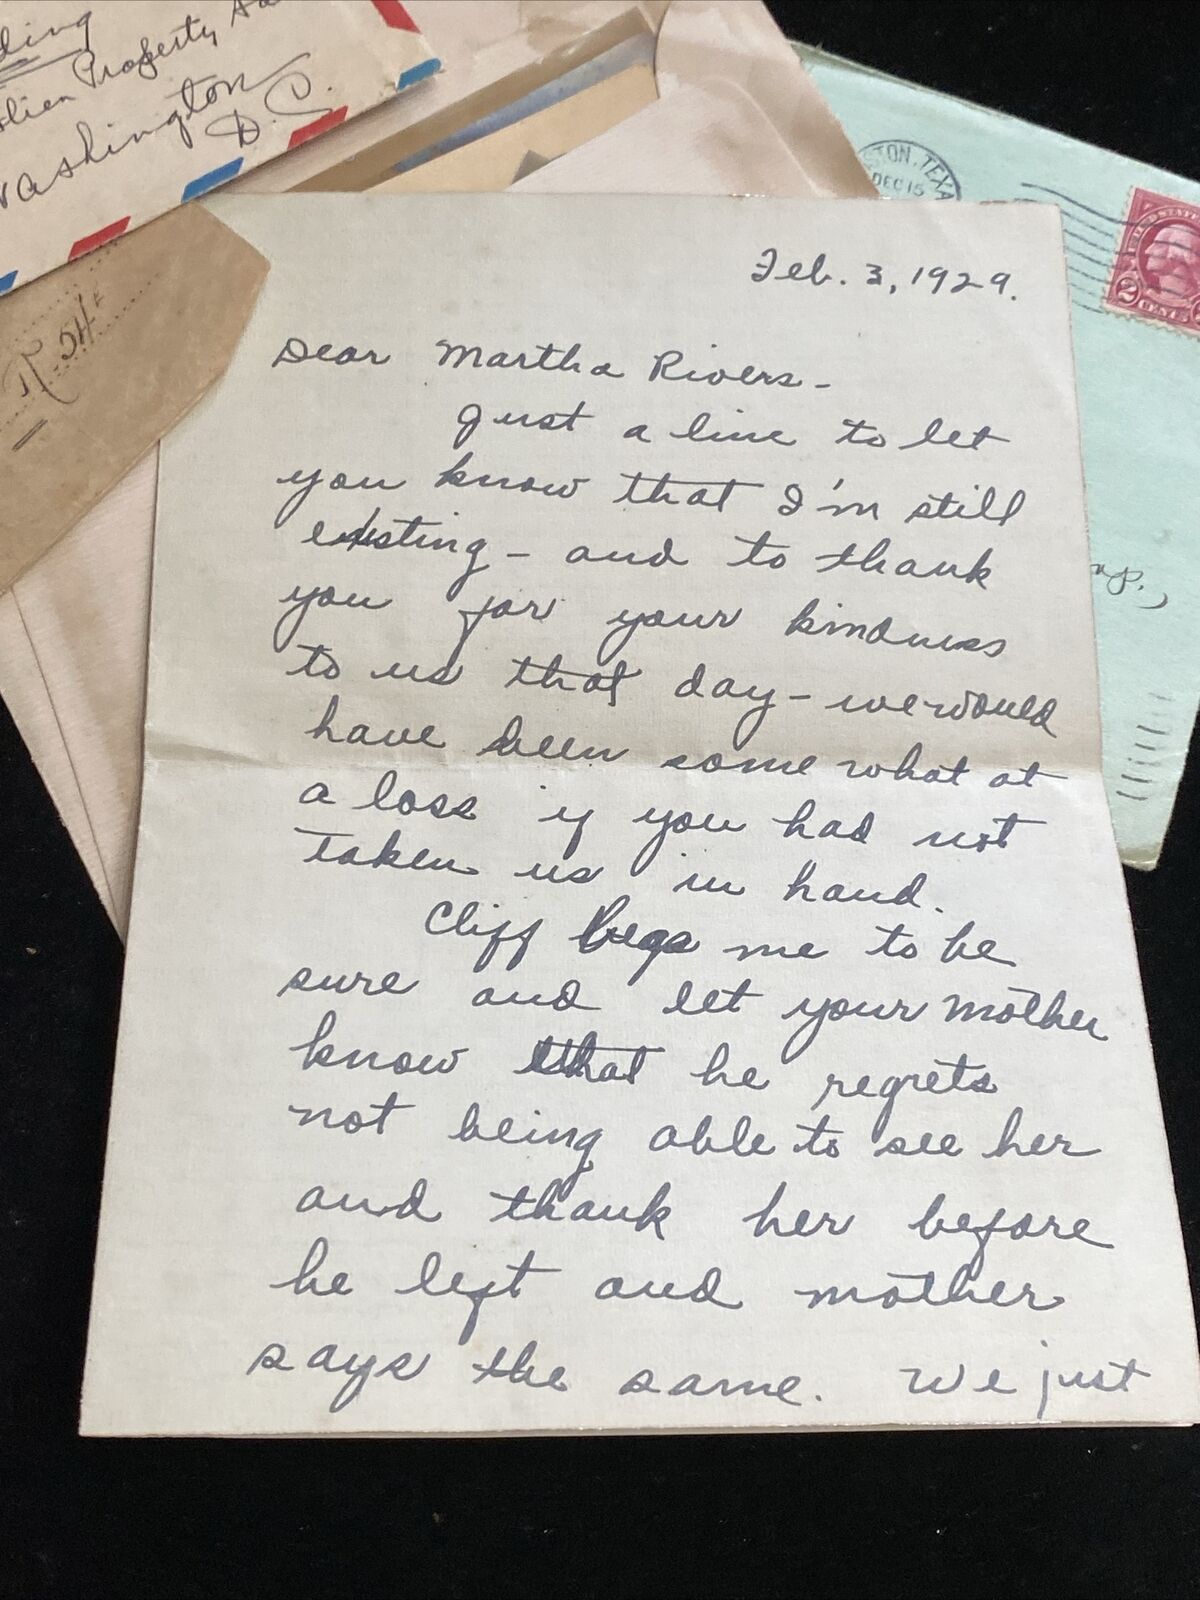 Property
Washington
D.C.
TON, TEXA
DEC 15
2 CENTS 2
Feb. 3, 1929.
Dear Martha Rivers-
Just a line to let
you know that I'm still
existing - and to thank
you for your kindness
to us that day - we would
have been some what at
a loss if you had not
taken us in hand.
Cliff begs me to be
sure and let your mother
know that he regrets
not being able to see her
and thank her before
he left and mother
says the same. We just